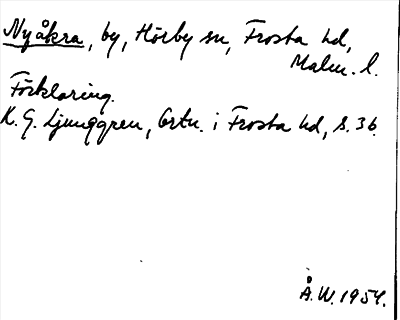 Nyåkra, by, Hörby sn, Frosta hd,
Malm. l.
Förklaring.
K. G. Ljunggren, Ortn. i Frosta hd, s. 36.
Å. W. 1954.